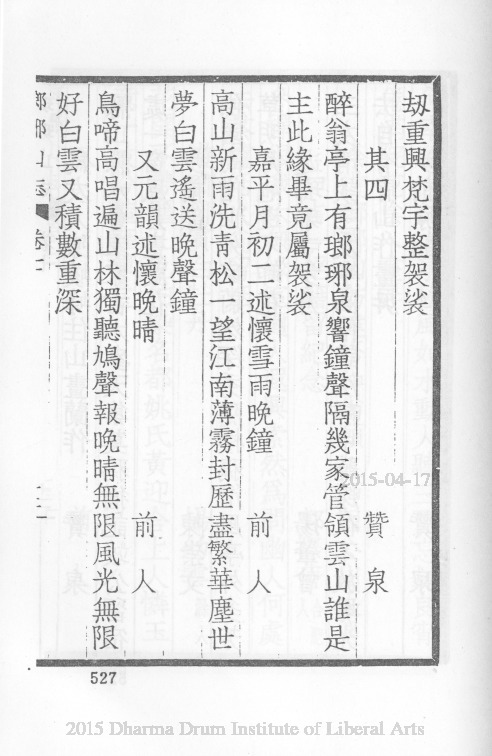 刼重興梵宇整袈裟
其四 贊泉
醉翁亭上有瑯琊泉響鐘聲隔幾家管領雲山誰是
主此緣畢竟屬袈裟
嘉平月初二述懷雪雨晚鐘 前人
高山新雨洗青松一望江南薄霧封歷盡繁華塵世
夢白雲遙送晚聲鐘
又元韻述懷晚晴 前人
鳥啼高唱遍山林獨聽鳩聲報晚晴無限風光無限
好白雲又積數重深
527
2015-04-17
2015 Dharma Drum Institute of Liberal Arts